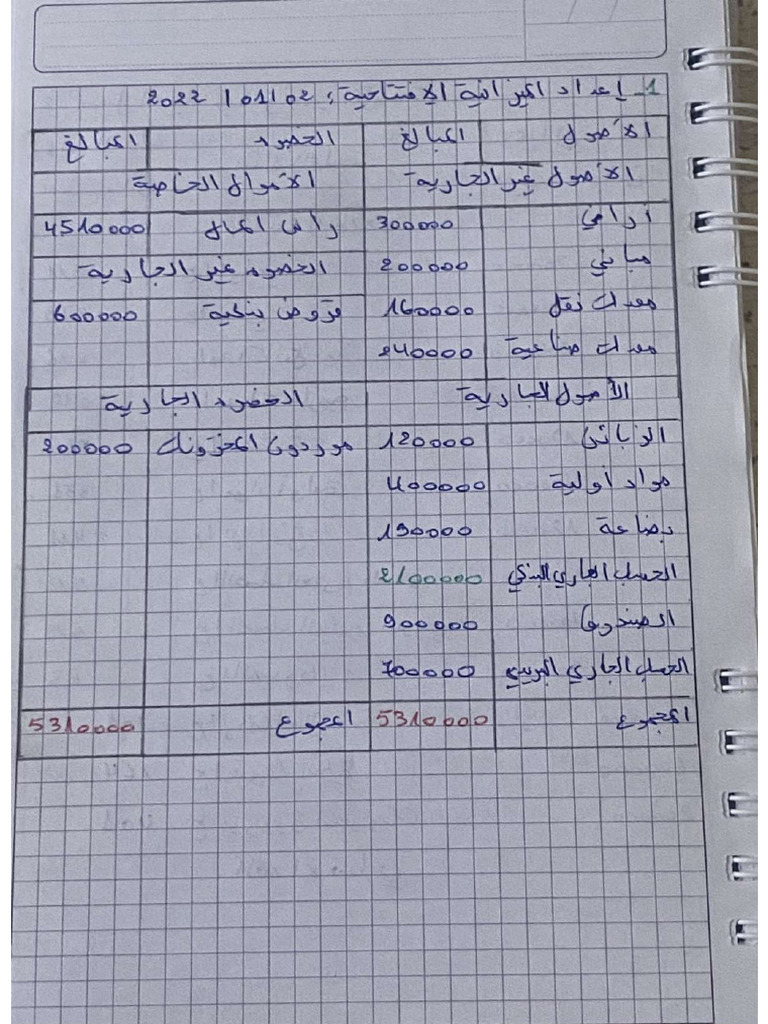 1- إعداد الميزانية الإفتتاحية: 02/01/2022
الأصول المبالغ الخصوم المبالغ
الأصول غير الجارية الأموال الخاصة
أراضي 300000 رأس المال 4510000
مباني 200000 الخصوم غير الجارية
معدات نقل 160000 قروض بنكية 600000
معدات صناعية 240000
الأصول الجارية الخصوم الجارية
الزبائن 120000 موردون المخزونات 200000
مواد أولية 400000
بضاعة 190000
الحساب الجاري البنكي 2100000
الصندوق 900000
الحساب الجاري البريدي 700000
المجموع 5310000 المجموع 5310000